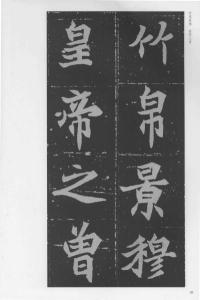 竹帛景穆
皇帝之曾